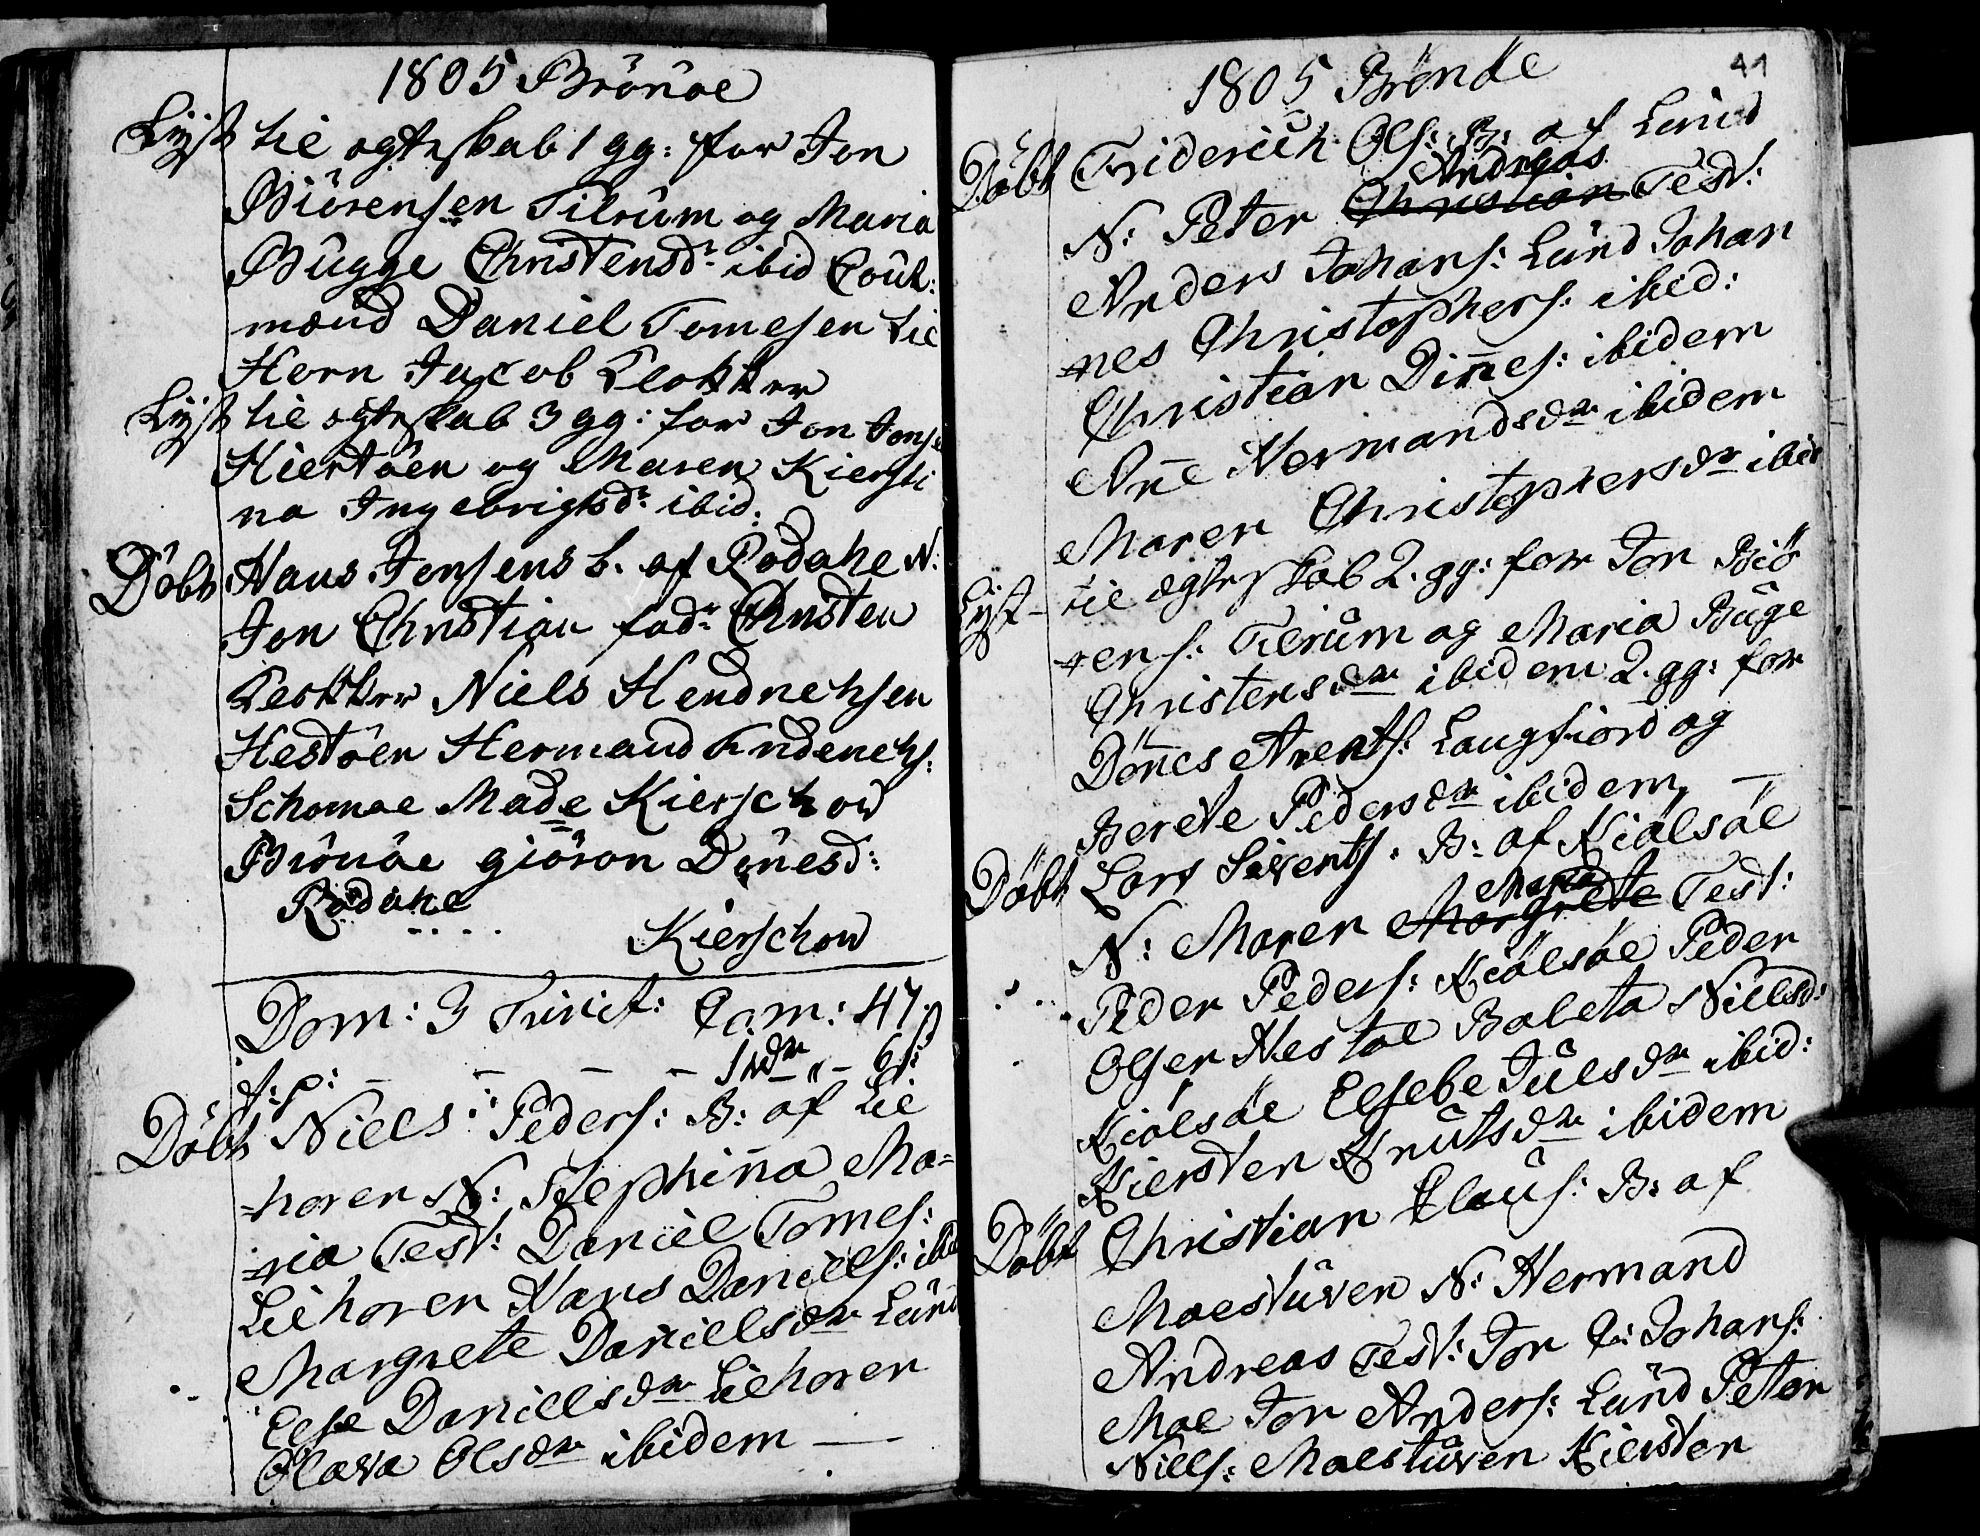 1805 Brönöe
Lÿst til ægteskab 1 gg: for Jon
Biörensen Tilrŭm og Maria
Bŭgge Christensdr ibid Cauk:
mænd Daniel Tomesen Lie
Horn Jacob Klokker
Lÿst til ægteskab 3 gg: for Jon Jons:
Hiertöen og Maren Kiersti
na Ingebrigtsdr ibid.
Döbt Hans Jensens b. af Rodahe N:
Jon Christian fadr Christen
Klokker Niels Hendrechsen
Hestöen Hermand Friderechs:
Schomae Made Kierschow
Brönöe giöron Dönesd:
Rödahe
Kierschow
Dom: 3 Trinit: Com: 47
df: p: — — — — 1 rdr „ — 6 s
Döbt Niels Peders: B: af Lie
horen N: Stephina Ma=
=ria Test: Daniel Tomes:
Liehoren Hans Daniels: ibid
Margrete Danielsdr Lŭnd
Else Danielsdr Liehoren
Olava Olsdr ibidem —
41
1805 Brönöe
Döbt Friderich Ols: B: af Lŭnd
Andreas
N: Peter Christian Test:
Anders Johans: Lŭnd Johan
nes Christophers: ibid:
Christian Dines: ibidem
Ane Hermandsdr ibidem
Maren Christophersdr ibid
Lÿst — til ægteskab 2. gg: for Jon Biö
rens: Tilrŭm og Maria Bŭge
Christensdr ibidem 2. gg: for
Dönes Arents: Langfiord og
Berete Pedersdr ibidem —
Döbt Lars Sivents: B: af Kiölsöe
Maria
N: Maren Margrete Test:
Peder Peders: Kiölsöe Peder
Olsen Hestöe Baleta Nielsd:
Kiölsöe Elsebe Jŭlsdr ibid:
Kiersten Knŭtsdr ibidem
Döbt Christian Claŭs: B: af
Moestŭven N: Hermand
Andreas Test: Jon C: Johans:
Moe Jon Anders: Lŭnd Peter
Niels: Moestŭven Kiersten